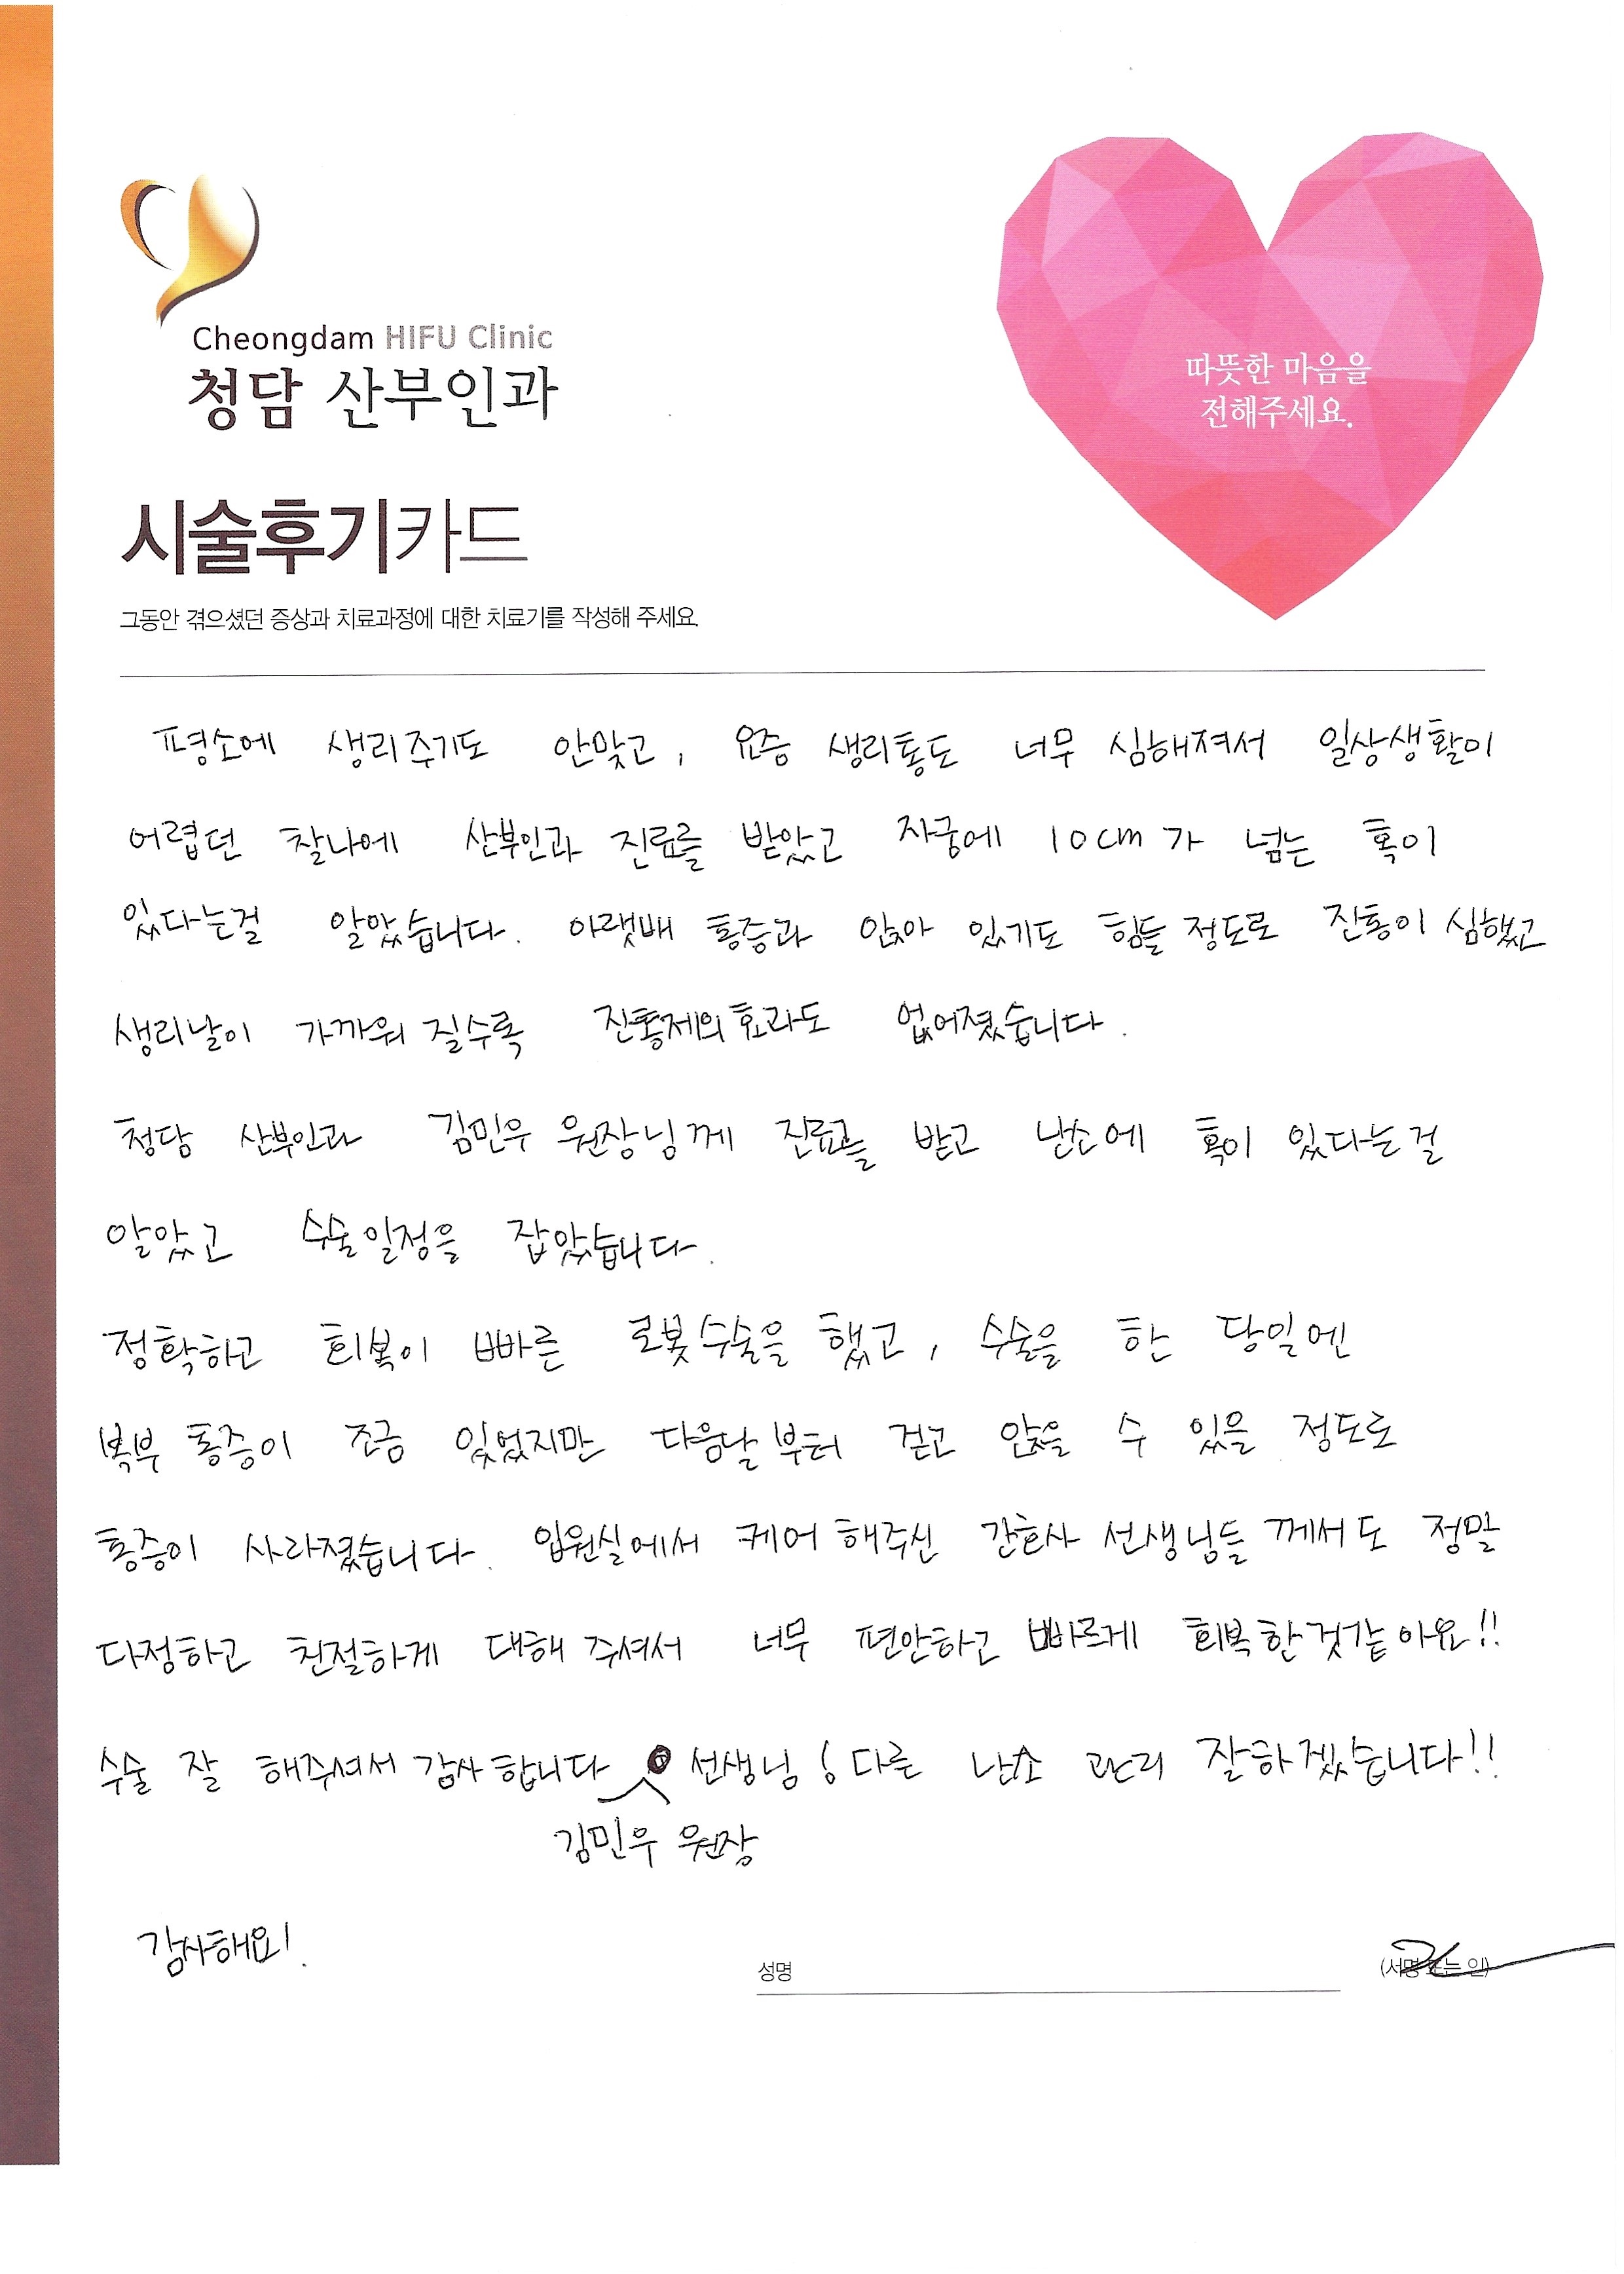 Cheongdam HIFU Clinic
청담 산부인과
따뜻한 마음을
전해주세요.
시술후기카드
그동안 겪으셨던 증상과 치료과정에 대한 치료기를 작성해 주세요.
평소에 생리주기도 안맞고, 요즘 생리통도 너무 심해져서 일상생활이
어렵던 찰나에 산부인과 진료를 받았고 자궁에 10cm가 넘는 혹이
있다는걸 알았습니다. 아랫배 통증과 앉아 있기도 힘들 정도로 진통이 심했고
생리날이 가까워 질수록 진통제의 효과도 없어졌습니다.
청담 산부인과 김민우 원장님께 진료를 받고 난소에 혹이 있다는걸
알았고 수술일정을 잡았습니다.
정확하고 회복이 빠른 로봇수술을 했고, 수술을 한 당일엔
복부 통증이 조금 있었지만 다음날부터 걷고 앉을 수 있을 정도로
통증이 사라졌습니다. 입원실에서 케어 해주신 간호사 선생님들 께서도 정말
다정하고 친절하게 대해 주셔서 너무 편안하고 빠르게 회복한것같아요!!
수술 잘 해주셔서 감사합니다 선생님! 다른 난소 관리 잘하겠습니다!!
김민우 원장
감사해요!
성명 (서명 또는 인)